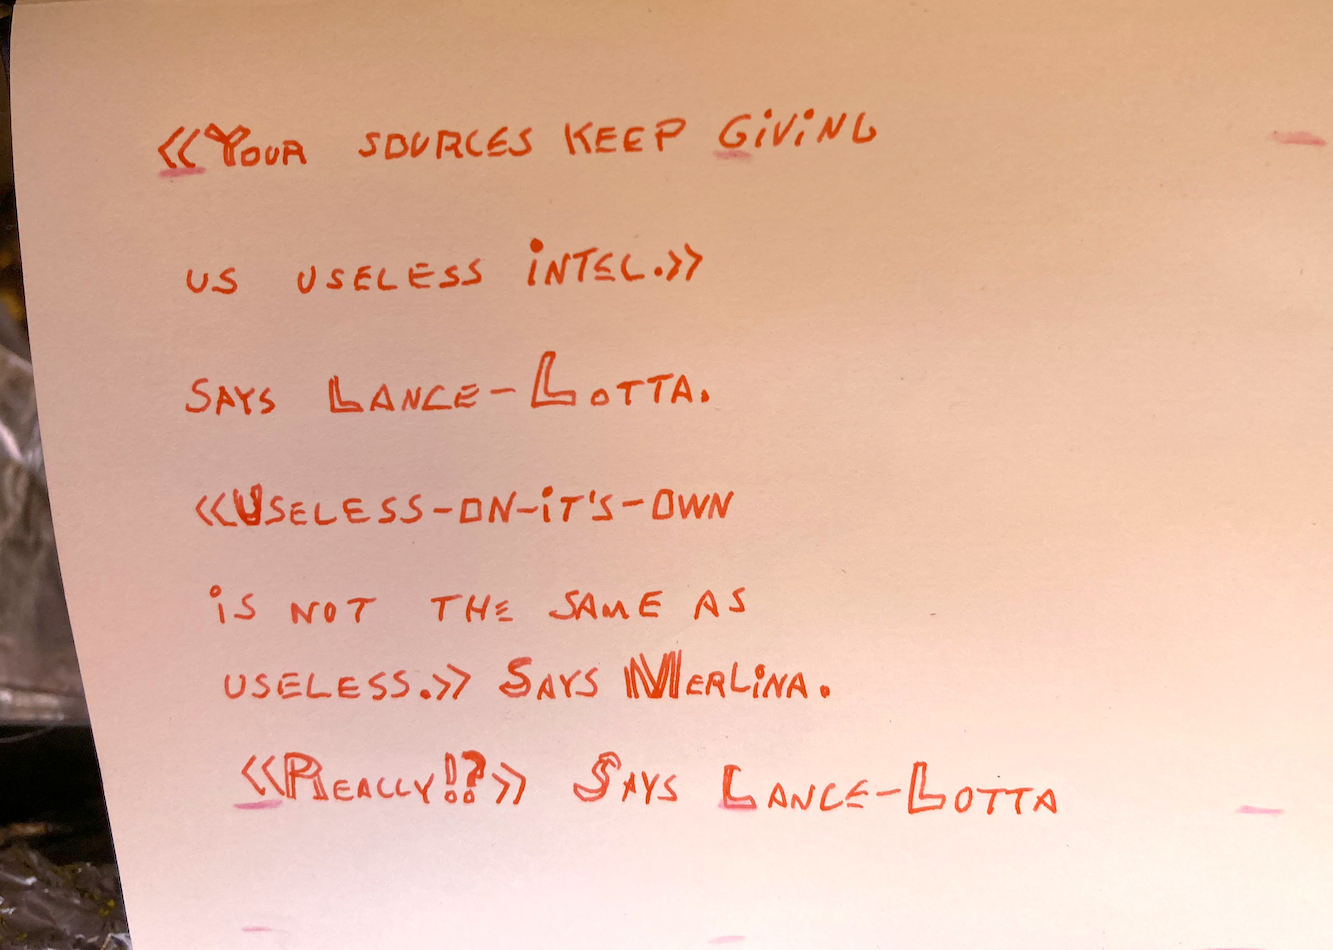 «Your sources keep giving
us useless intel.»
Says Lance-Lotta.
«Useless-on-it's-own
is not the same as
useless.» Says Merlina.
«Really!?» Says Lance-Lotta